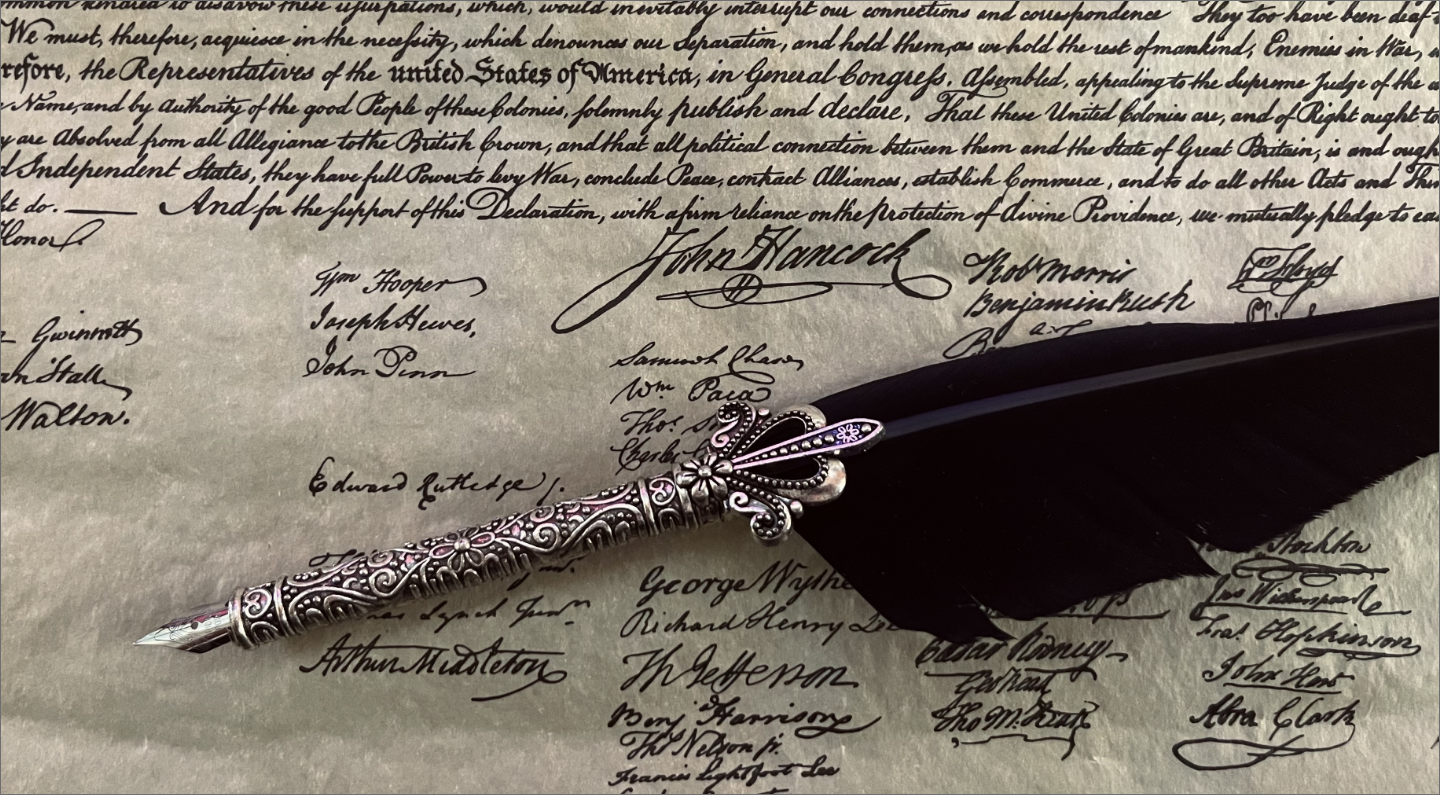 common kindred to disavow these usurpations, which, would inevitably interrupt our connections and correspondence They too have been deaf
We must, therefore, acquiesce in the necessity, which denounces our Separation, and hold them, as we hold the rest of mankind, Enemies in War,
refore, the Representatives of the united States of America, in General Congress, Assembled, appealing to the Supreme Judge of the
Name, and by Authority of the good People of these Colonies, solemnly publish and declare, That these United Colonies are, and of Right ought to
y are Absolved from all Allegiance to the British Crown, and that all political connection between them and the State of Great Britain, is and ough
d Independent States, they have full Power to levy War, conclude Peace, contract Alliances, establish Commerce, and to do all other Acts and Thin
ht do. — And for the support of this Declaration, with a firm reliance on the protection of divine Providence, we mutually pledge to ea
Honor
John Hancock
Wm Hooper
Joseph Hewes,
John Penn
Gwinnett
Hall
Walton.
Edward Rutledge
Lynch Junr.
Arthur Middleton
Samuel Chase
Wm. Paca
Thos.
Charles
George Wythe
Richard Henry Lee
Th Jefferson
Benj Harrison
Thos Nelson jr.
Francis Lightfoot Lee
Robt Morris
Benjamin Rush
Caesar Rodney
Geo Read
Tho M. Kean
Wm Floyd
Stockton
Jno Witherspoon
Fras. Hopkinson
John Hart
Abra Clark